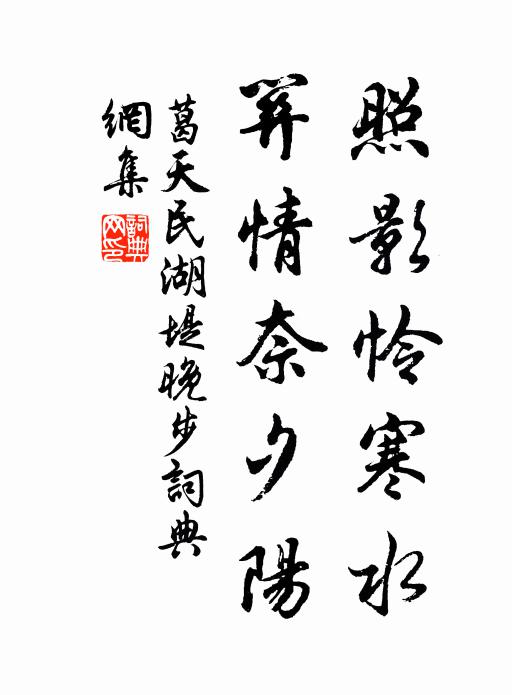 照影怜寒水
關情奈夕陽
葛天民湖堤晚步詞典
網集
詞典
网印